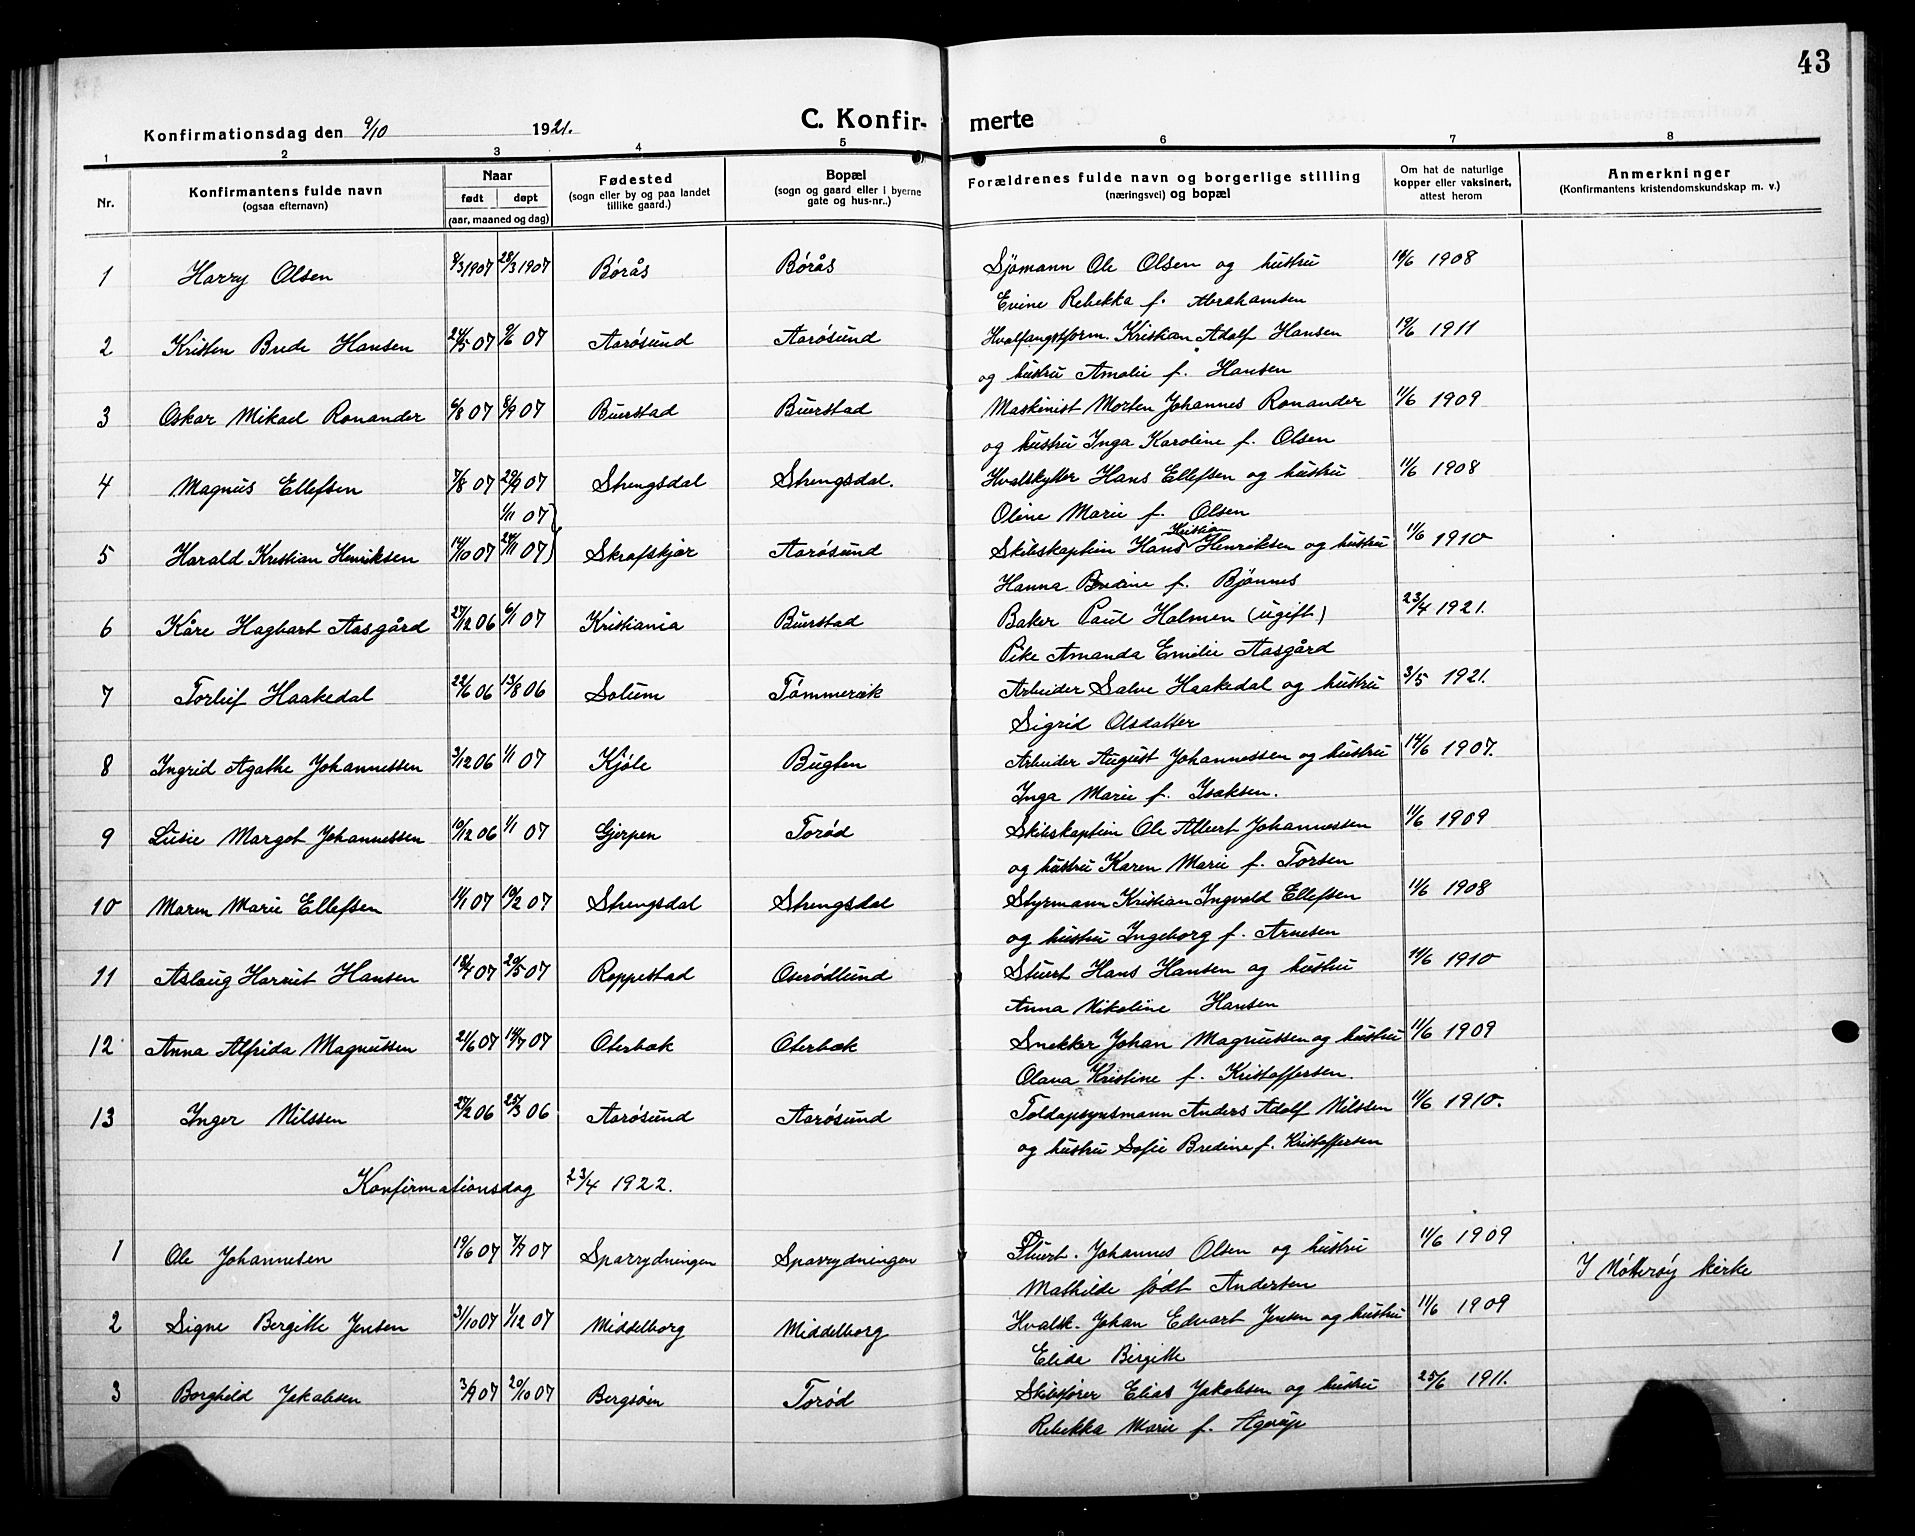 43
Konfirmationsdag den 9/10 1921.
C. Konfir- merte
1 2 3 4 5 6 7 8
Nr.
Konfirmantens fulde navn
(ogsaa efternavn)
Naar
født døpt
(aar, maaned og dag)
Fødested
(sogn eller by og paa landet
tillike gaard.)
Bopæl
(sogn og gaard eller i byerne
gate og hus-nr..)
Forældrenes fulde navn og borgerlige stilling
(næringsvei) og bopæl
Om hat de naturlige
kopper eller vaksinert,
attest herom
Anmerkninger
(Konfirmantens kristendomskundskap m. v.)
1 Harry Olsen 9/3 1907 28/3 1907 Børås Børås Sjømann Ole Olsen og hustru 11/6 1908
Evine Rebekka f. Abrahamsen
2 Kristen Brede Hansen 24/5 07 9/6 07 Aarøsund Aarøsund Hvalfangstform. Kristian Adolf Hansen 19/6 1911
og hustru Amalie f. Hansen
3 Oskar Mikael Ronander 6/8 07 8/9 07 Buerstad Buerstad Maskinist Morten Johannes Ronander 11/6 1909
og hustru Inga Karoline f. Olsen
4 Magnus Ellefsen 7/8 07 29/9 07 Strengsdal Strengsdal. Hvalskytter Hans Ellefsen og hustru 11/6 1908
Oline Marie f. Olsen
1/11 07
5 Harald Kristian Henriksen 14/10 07 24/11 07 Skrafskjær Aarøsund Skibskaptein Hans Kristian Henriksen og hustru 11/6 1910
Hanna Bredine f. Bjønnes
6 Kåre Hagbart Aasgård 27/12 06 6/1 07 Kristiania Buerstad Baker Paul Holmen (ugift) 23/4 1921.
Pike Amanda Emilie Aasgård
7 Torleif Haakedal 22/6 06 13/8 06 Solum Tømmervik Arbeider Salve Haakedal og hustru 3/5 1921.
Sigrid Olsdatter
8 Ingrid Agathe Johannessen 3/12 06 1/1 07 Kjøle Bugten Arbeider August Johannessen og hustru 14/6 1907.
Inga Marie f. Isaksen.
9 Lusie Margot Johannessen 10/12 06 1/1 07 Gjerpen Torød Skibskaptein Ole Albert Johannessen 11/6 1909
og hustru Karen Marie f. Torsen
10 Maren Marie Ellefsen 11/1 07 10/2 07 Strengsdal Strengsdal Styrmann Kristian Ingvald Ellefsen 11/6 1908
og hustru Ingeborg f. Arnesen
11 Aslaug Harriet Hansen 18/4 07 20/5 07 Roppestad Oserødlund Stuert Hans Hansen og hustru 11/6 1910
Anna Nikoline Hansen
12 Anna Alfrida Magnussen 21/6 07 14/7 07 Oterbæk Oterbæk Snekker Johan Magnussen og hustru 11/6 1909
Olava Kristine f. Kristoffersen.
13 Inger Nilssen 27/2 06 25/3 06 Aarøsund Aarøsund Toldopsynsmann Anders Adolf Nilssen 11/6 1910.
og hustru Sofie Bredine f. Kristoffersen
Konfirmationsdag 23/4 1922.
1 Ole Johannesen 19/6 07 7/7 07 Sparrydningen Sparrydningen Stuert. Johannes Olsen og hustru 11/6 1909
Mathilde født Andersen I Nøtterøy kirke
2 Signe Bergitte Jensen 31/10 07 1/12 07 Middelborg Middelborg Hvalsk. Johan Edvart Jensen og hustru 11/6 1909
Elida Birgitte
3 Borghild Jakobsen 3/9 07 20/10 07 Bergsøen Torød Skibsfører Elias Jakobsen og hustru 25/6 1911.
Rebekka Marie f. Agerup